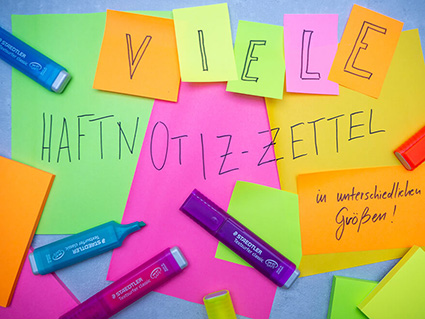 VIELE
HAFTNOTIZ-ZETTEL
in unterschiedlichen
Größen!
STAEDTLER
STAEDTLER
Textsurfer classic
STAEDTLER
Textsurfer classic
STAEDTLER
Textsurfer classic